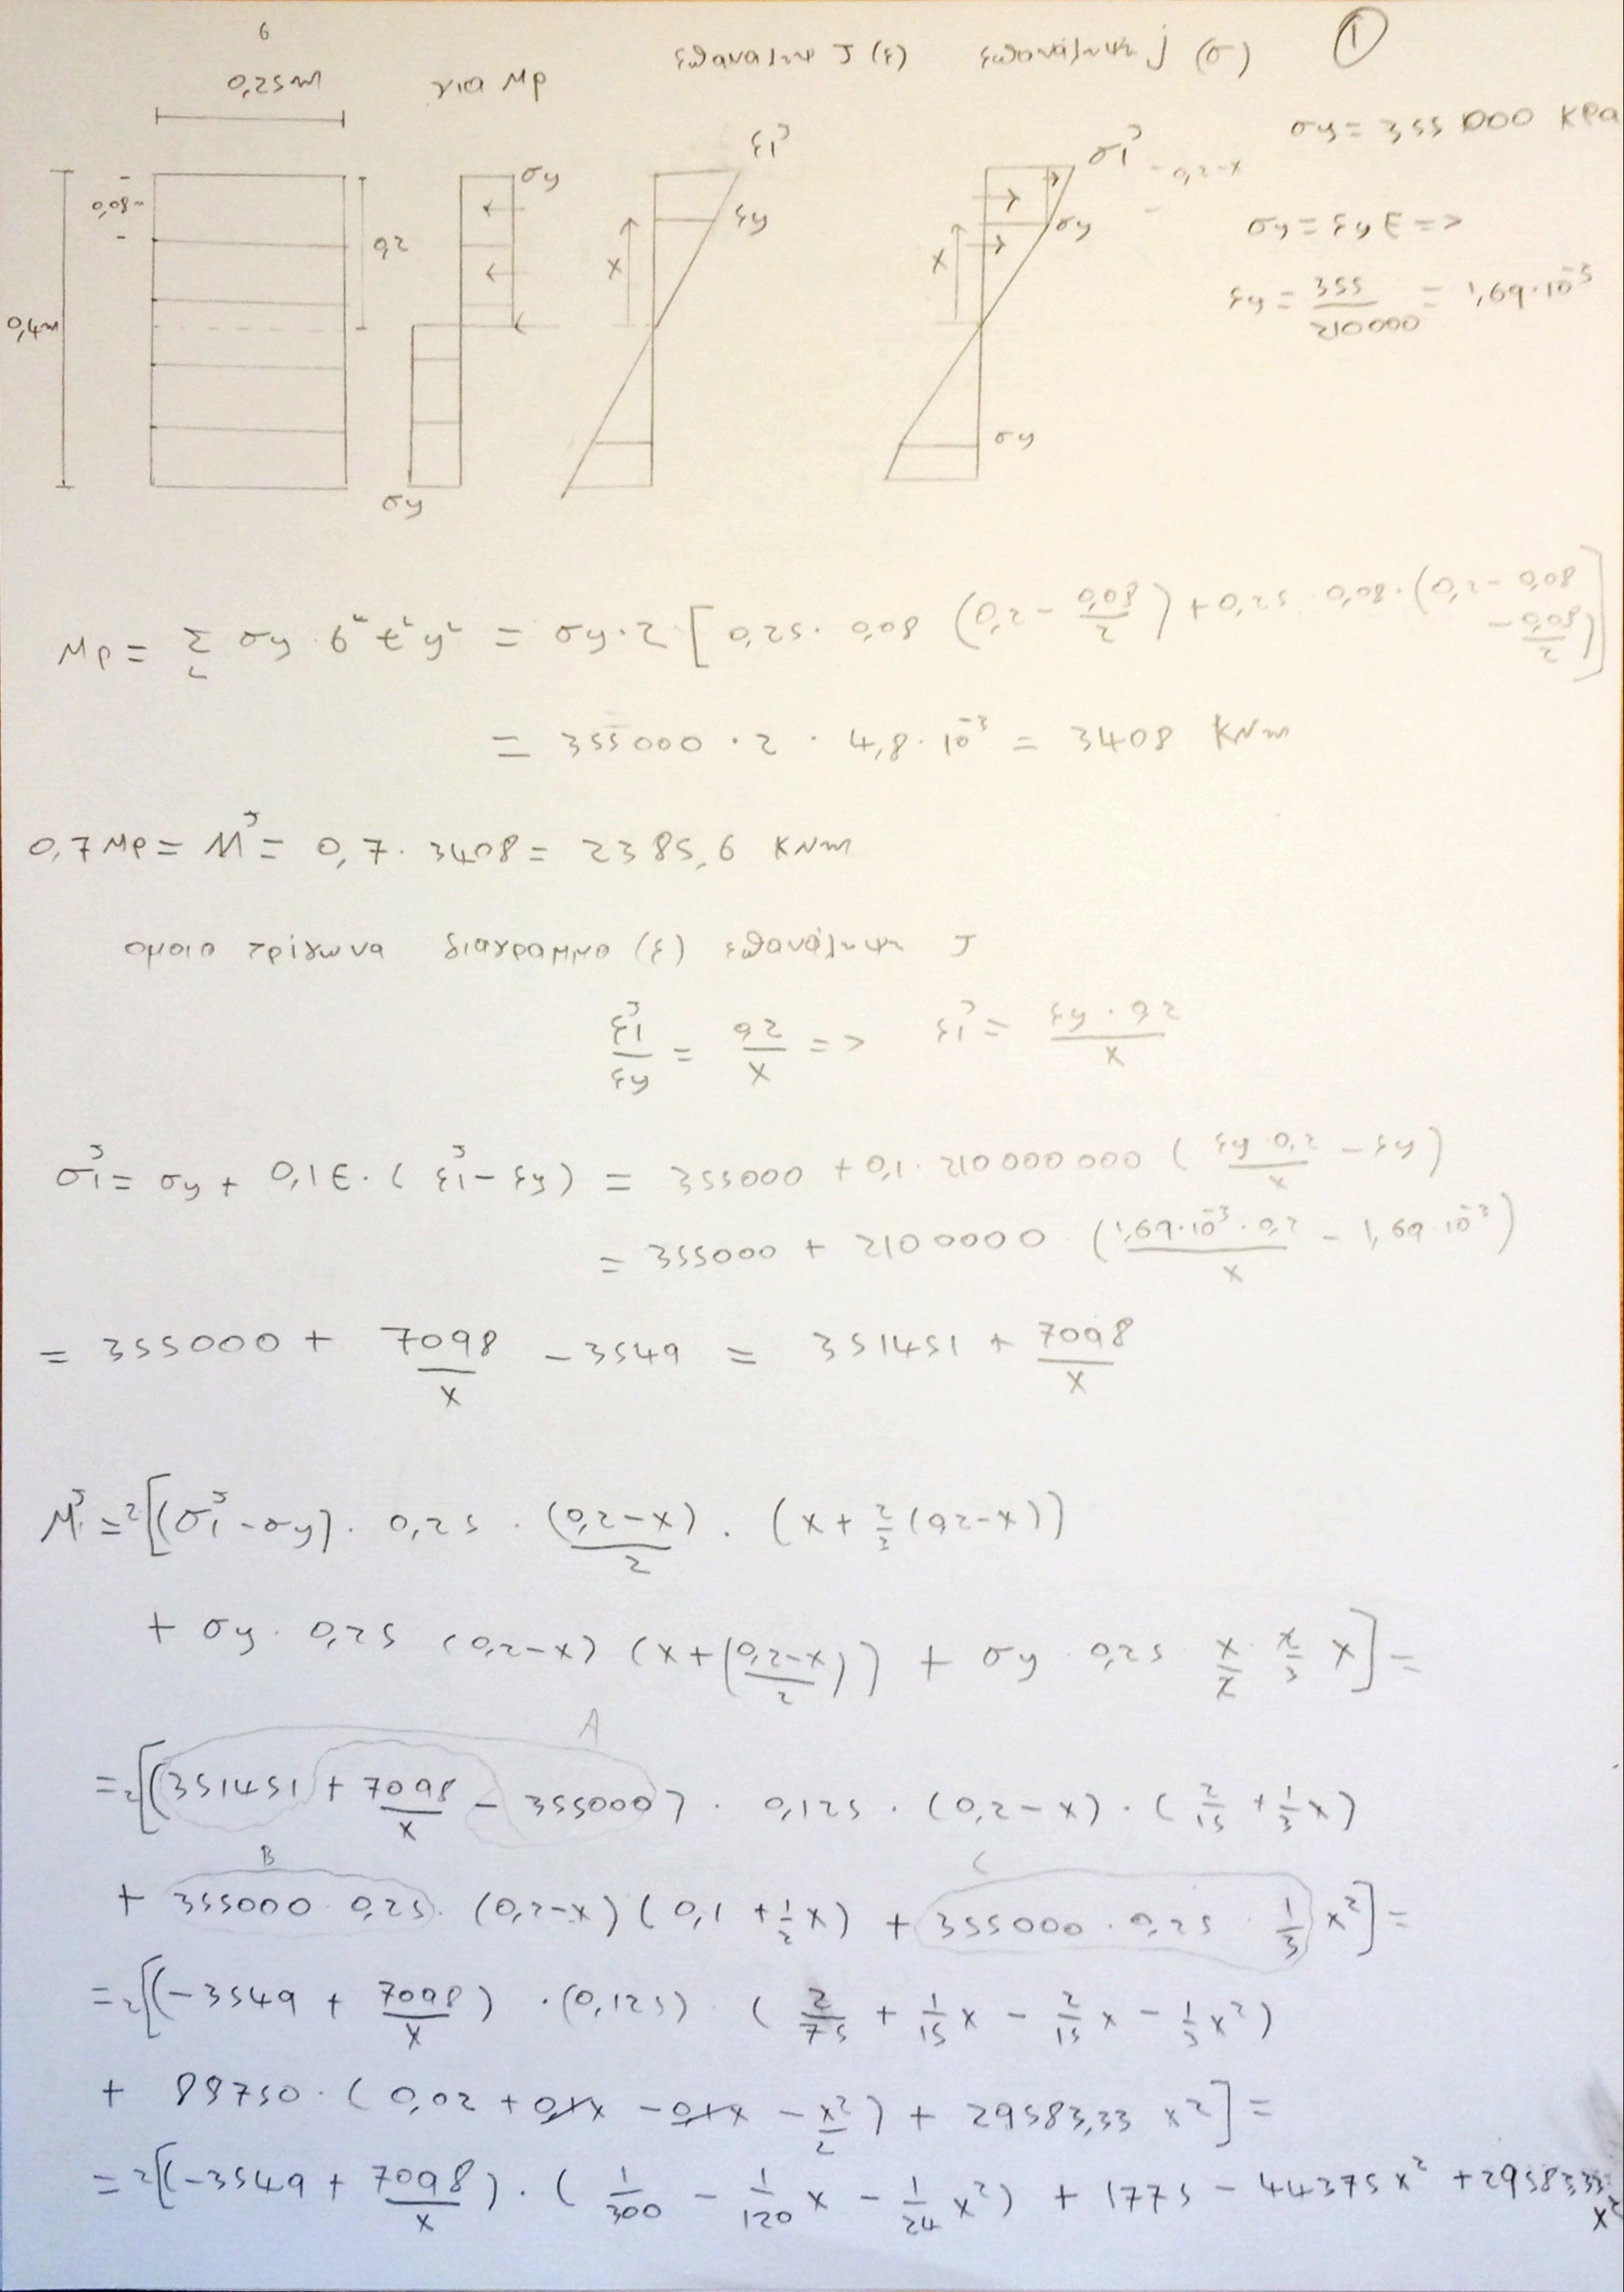 6
0,25m
για Mp
επαναληψη J (ε)
επανάληψη j (σ)
1
σy = 355 000 kPa
0,08m
0,2
0,4m
σy
σy
ε1^J
εy
x
σ1^J
0,2-x
σy
x
σy
σy = εy E =>
εy = 355/210000 = 1,69·10^-3
Mp = Σ_i σy · b^i t^i y^i = σy·2 [ 0,25 · 0,08 (0,2 - 0,08/2) + 0,25 · 0,08 · (0,2 - 0,08 - 0,08/2) ]
= 355000 · 2 · 4,8·10^-3 = 3408 kNm
0,7Mp = M^J = 0,7 · 3408 = 2385,6 kNm
ομοια τρίγωνα διαγραμμα (ε) επανάληψη J
ε1^J/εy = 0,2/x => ε1^J = εy · 0,2/x
σ1^J = σy + 0,1E · (ε1^J - εy) = 355000 + 0,1 · 210000000 (εy 0,2/x - εy)
= 355000 + 2100000 · (1,69·10^-3 · 0,2/x - 1,69·10^-3)
= 355000 + 7098/x - 3549 = 351451 + 7098/x
M^J = 2[(σ1^J - σy) · 0,25 · (0,2-x)/2 · (x + 2/3 (0,2-x))
+ σy · 0,25 (0,2-x) (x + (0,2-x)/2)) + σy · 0,25 x/2 2/3 x] =
A
= 2[(351451 + 7098/x - 355000) · 0,125 · (0,2-x) · (2/15 + 1/3 x)
B
C
+ 355000 · 0,25 · (0,2-x) (0,1 + 1/2 x) + 355000 · 0,25 · 1/3 x²] =
= 2[(-3549 + 7098/x) · (0,125) · (2/75 + 1/15 x - 2/15 x - 1/3 x²)
+ 88750 · (0,02 + 0,1x - 0,1x - x²/2) + 29583,33 x²] =
= 2[(-3549 + 7098/x) · (1/300 - 1/120 x - 1/24 x²) + 1775 - 44375x² + 29583,33 x²